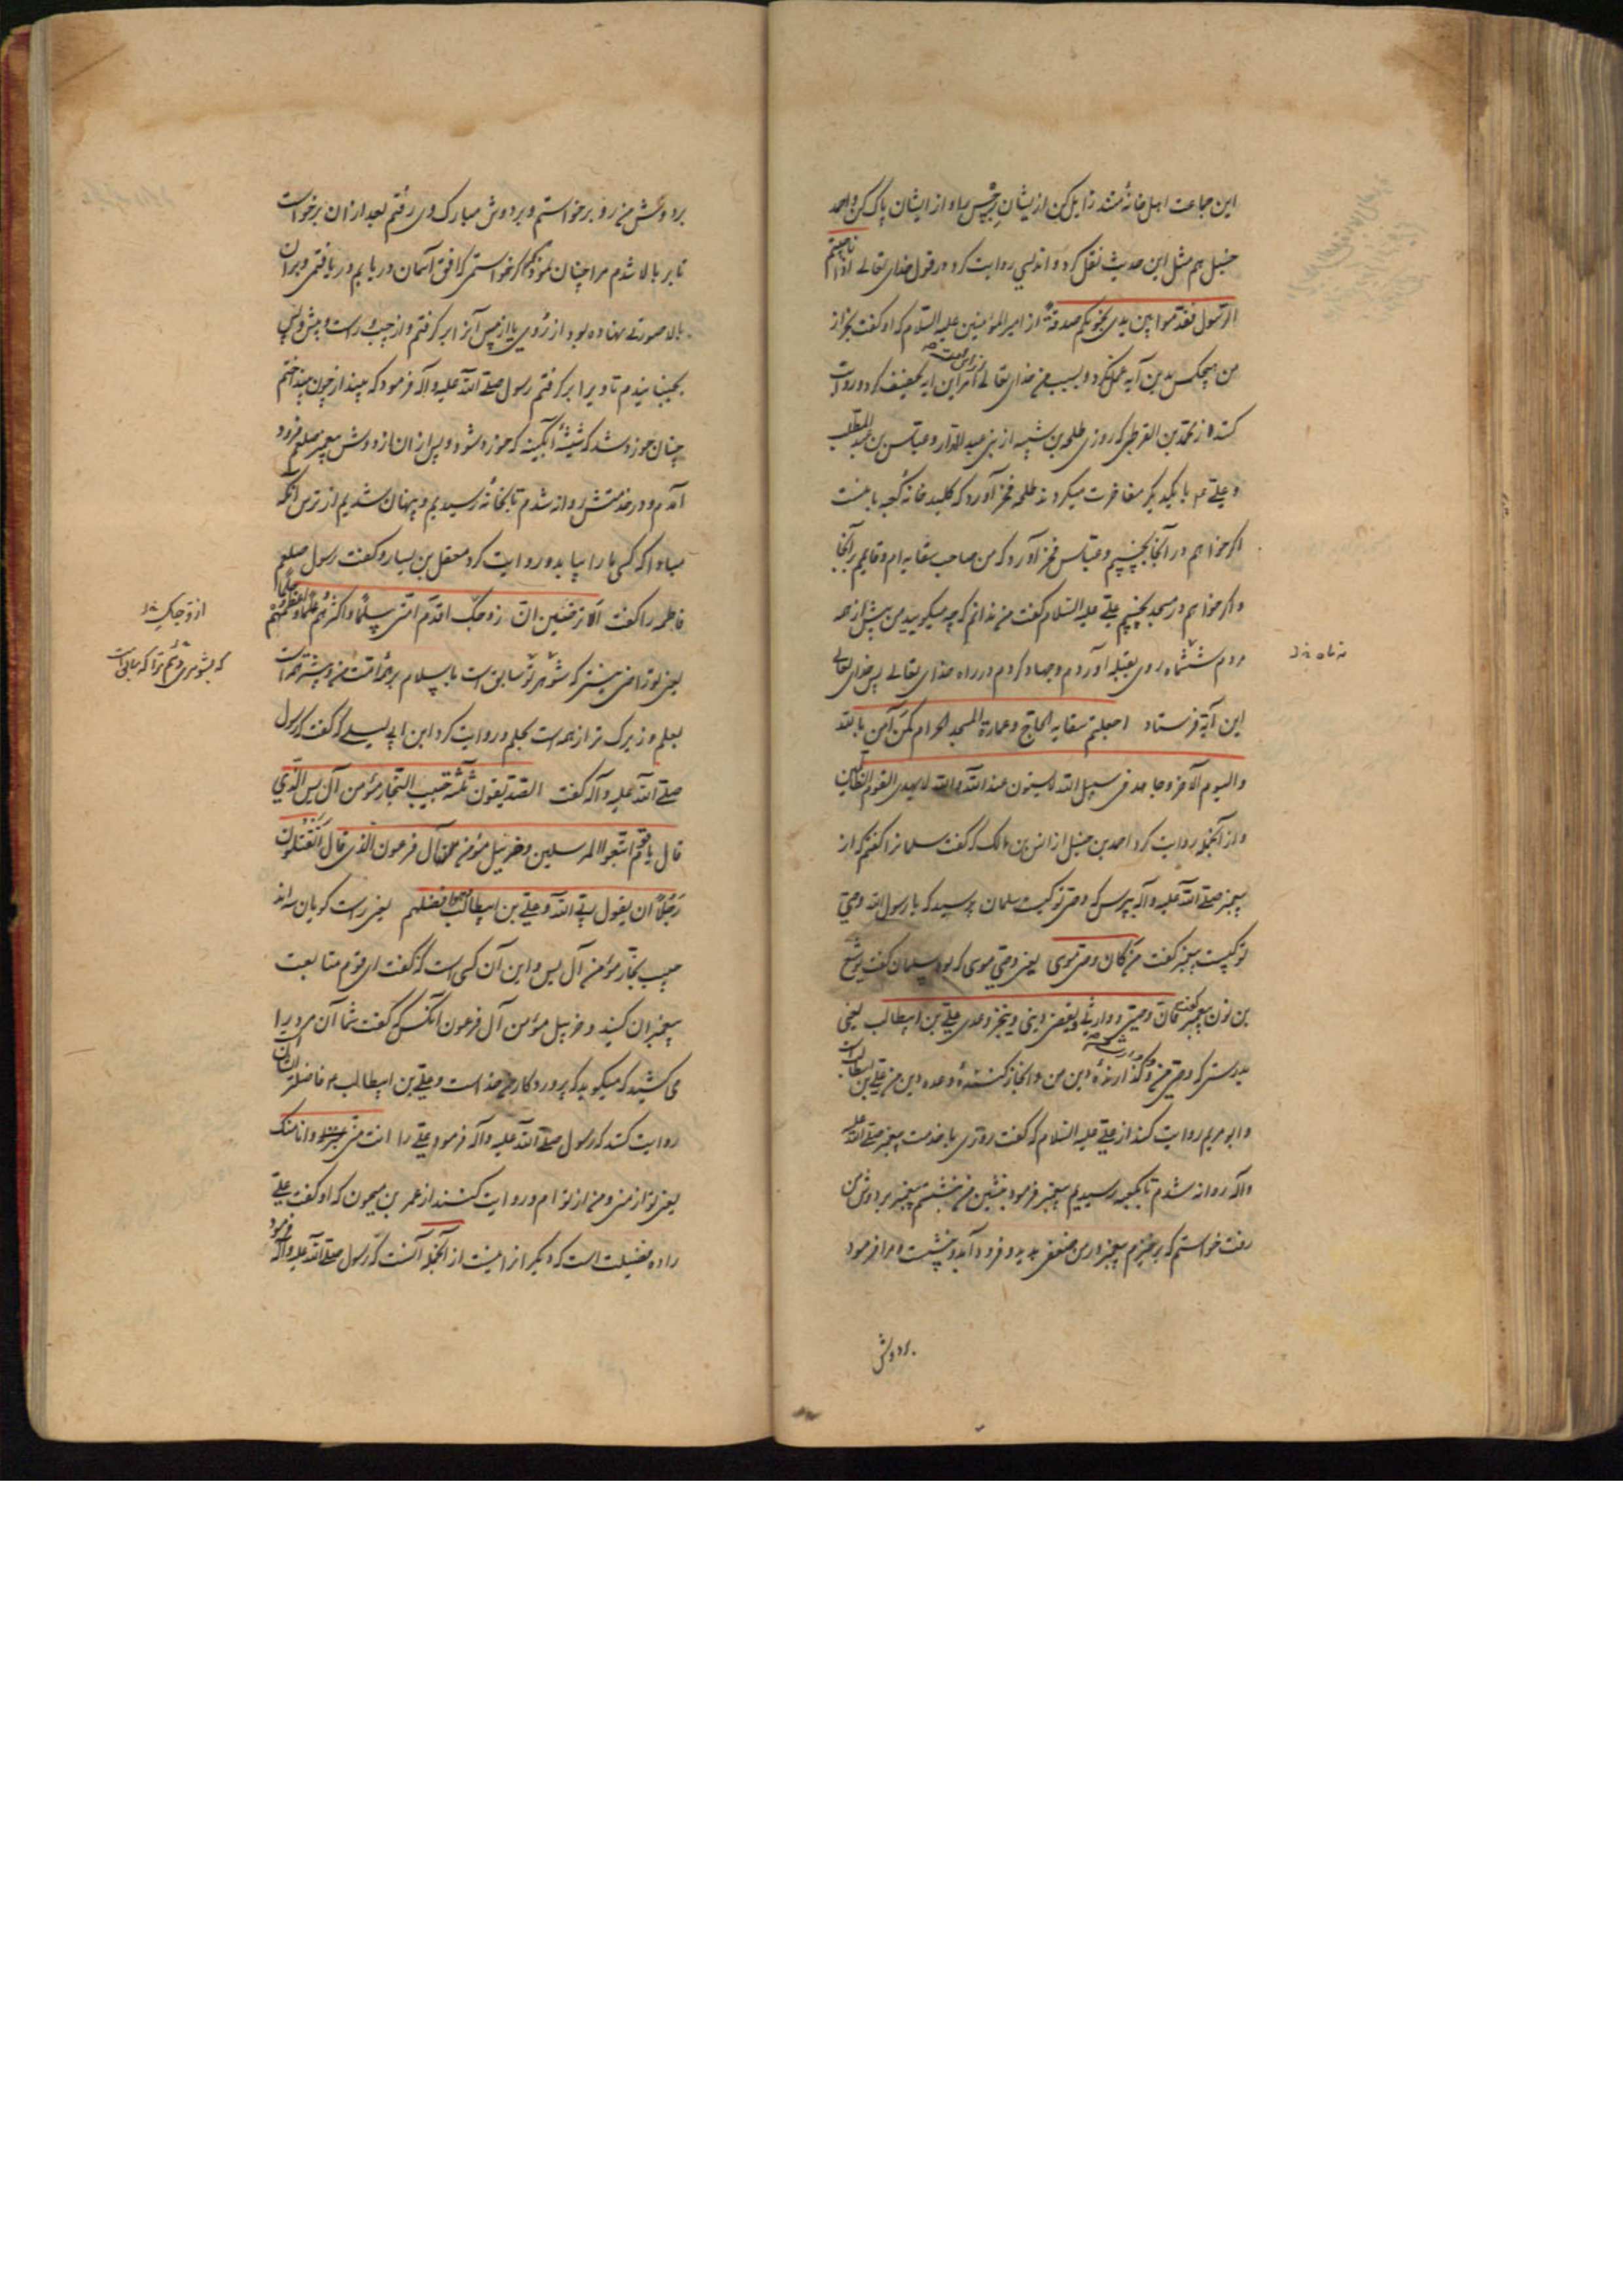 این جماعت اهل خانهٔ منند زایل کن ازیشان رجس را و از ایشان پاک کن و احمد
حنبل هم مثل این حدیث نقل کرد و اندلسی روایت کرد در قول خدای تعالی اذا ناجیتم
الرسول فقدموا بین یدی نجویکم صدقة از امیر المؤمنین علیه السلام که او گفت بجز از
من هیچکس بدین آیه عمل نکرد و بسبب من خدای تعالی این آیه تخفیف کرد و روایت
کنند از محمد بن القرظی که روزی طلحه بن شیبه از بنی عبد الدار و عباس بن عبد المطلب
و علی با یکدیگر مفاخرت میکردند طلحه فخر آورد که کلید خانه کعبه با منست
اگر خواهم در آنجا بخسپم و عباس فخر آورد که من صاحب سقایه ام و قایم بر آنجا
و اگر خواهم در مسجد بخسپم علی علیه السلام گفت من ندانم که چه میگویید من پیش از همه
مردم ششماه روی بقبله آوردم و جهاد کردم در راه خدای تعالی پس خدای تعالی
این آیه فرستاد اجعلتم سقایه الحاج و عمارة المسجد الحرام کمن آمن بالله
والیوم الآخر و جاهد فی سبیل الله لا یستون عند الله والله لا یهدی القوم الظالمین
و از آنجمله روایت کرد احمد بن حنبل از انس بن مالک که گفت سلمانرا گفتم که از
پیغمبر صلی الله علیه و آله بپرس که وصی تو کیست سلمان پرسید که یا رسول الله وصی
تو کیست پیغمبر گفت من کان وصی موسی یعنی وصی موسی که بود سلمان گفت یوشع
بن نون پیغمبر گفت فان وصیی و وارثی و یقضی دینی و ینجز وعدی علی بن ابیطالب یعنی
بدرستی که وصی من و گذارندهٔ دین من و انجاز کنندهٔ وعده دین من علی بن ابیطالب است
و ابو مریم روایت کند از علی علیه السلام که گفت روزی با خدمت پیغمبر صلی الله علیه
و آله روانه شدم تا بکعبه رسیدیم پیغمبر فرمود بنشین من بنشستم پیغمبر بر دوش من
رفت خواستم که برخیزم پیغمبر در من ضعفی بدید و فرود آمد و بنشست و مرا فرمود
بر دوش
بر دوش من رو برخواستم و بر دوش مبارک وی رفتم بعد ازان برخواست
تا بر بالا شدم مرا چنان نمود که اگر خواستمی که افق آسمان دریابم دریافتمی و بران
بالا صورتی نهاده بود از روی یا از مس آنرا بر گرفتم و از چپ و راست و پیش و پس
بجنبانیدم تا ویرا بر گرفتم رسول صلی الله علیه و آله فرمود که بینداز چون بینداختم
چنان خورد شد که شیشهٔ آبگینه که خورد شود و پس ازان از دوش پیغمبر صلعم فرود
آمدم و در خدمتش روانه شدم تا بخانه رسیدیم و پنهان شدیم از ترس آنکه
مبادا که کسی ما را بیابد و روایت کرد معقل بن یسار و گفت رسول صلعم
فاطمه را گفت الا ترضین ان زوجک اقدم امتی سلما و اکثرهم علما و اعظمهم حلما
یعنی تو راضی نیستی که شوهر تو سابق است باسلام بر همه امت من و بیشتر همه است
بعلم و بزرگ تر از همه است بحلم و روایت کرد ابن ابی لیلی که گفت که رسول
صلی الله علیه و آله گفت الصدیقون ثلثة حبیب النجار مؤمن آل یس الذی
قال یا قوم اتبعوا المرسلین و حزبیل مؤمن آل فرعون الذی قال اتقتلون
رجلا ان یقول ربی الله و علی بن ابیطالب و هو افضلهم یعنی راست گویان سه اند
حبیب نجار مؤمن آل یس و این آن کسی است که گفت ای قوم متابعت
پیغمبران کنید و حزبیل مؤمن آل فرعون آنکس که گفت شما آن مرد را
می کشید که میگوید که پروردگار من خداست و علی بن ابیطالب و فاضلتر ایشان
روایت کنند که رسول صلی الله علیه و آله فرمود علی را انت منی و انا منک
یعنی تو از منی و من از تو ام و روایت کنند از عمر بن میمون که او گفت علی
را ده فضیلت است که دیگر از نیست از آنجمله آنست که رسول صلی الله علیه و آله فرمود
ازوجک